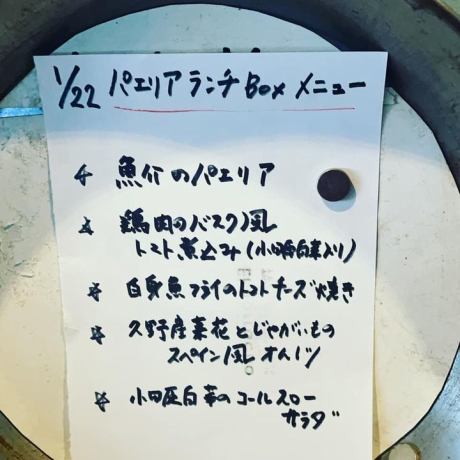 1/22 パエリアランチBox メニュー
魚介のパエリア
鶏肉のバスク風
トマト煮込み(小田原白菜入り)
白身魚フライのトマトチーズ焼き
久野産菜花とじゃがいもの
スペイン風オムレツ
小田原白菜のコールスロー
サラダ